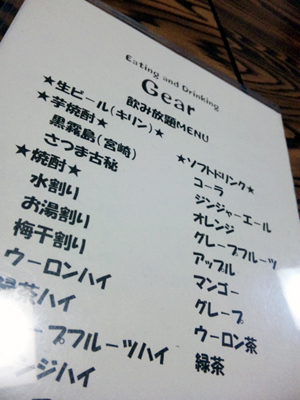 Eating and Drinking
Gear
飲み放題MENU
★生ビール(キリン)★
★芋焼酎★
黒霧島(宮崎)
さつま古秘
★焼酎★
水割り
お湯割り
梅干割り
ウーロンハイ
緑茶ハイ
ープフルーツハイ
ンジハイ
★ソフトドリンク★
コーラ
ジンジャーエール
オレンジ
グレープフルーツ
アップル
マンゴー
グレープ
ウーロン茶
緑茶